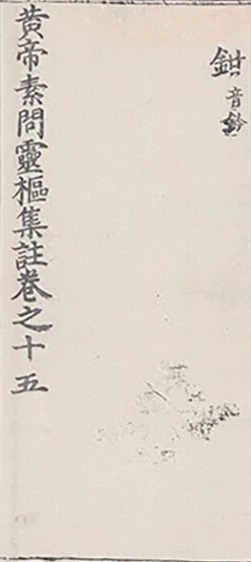 鉗音鈐
黄帝素問靈樞集註卷之十五